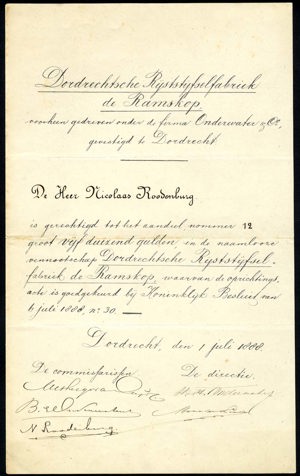 Dordrechtsche Rijststijfselfabriek
de Ramskop,
voorheen gedreven onder de firma Onderwater & Co.
gevestigd te Dordrecht
De Heer Nicolaas Roodenburg
is gerechtigd tot het aandeel nommer 12
groot vijf duizend gulden in de naamlooze
vennootschap Dordrechtsche Rijststijfsel-
fabriek de Ramskop, waarvan de oprichtings
acte is goedgekeurd bij Koninklijk Besluit van
6 juli 1888, no. 30.
Dordrecht, den 1 juli 1888.
De commissarissen
De directie.
N Roodenburg.